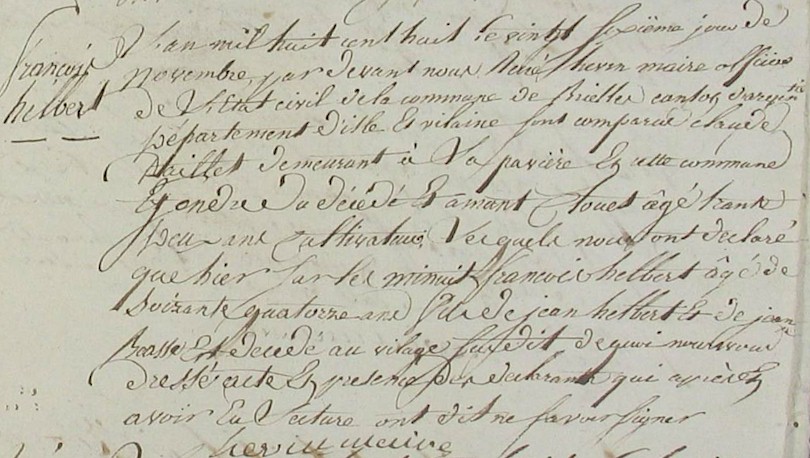 françois
helbert
L'an mil huit cent huit le vingt sixième jour de
novembre, par devant nous René chevin maire officier
de L'Etat civil de la commune de Brielles canton d'argentré
Département d'ille Et vilaine sont comparue claude
paillet demeurant à La pavière En cette commune
Gendre du décédé Et amant Clouet âgé trante
deux ans Cultivateur Lesquels nous ont declaré
que hier sur les minuit françois helbert âgé de
Soixante quatorze ans fils de jean helbert Et de jeanne
Brassé Est decédé au village susdit de quoi nous avons
dressé acte En presence des declarants qui après En
avoir Eu Lecture ont dit ne savoir signer
chevin maire